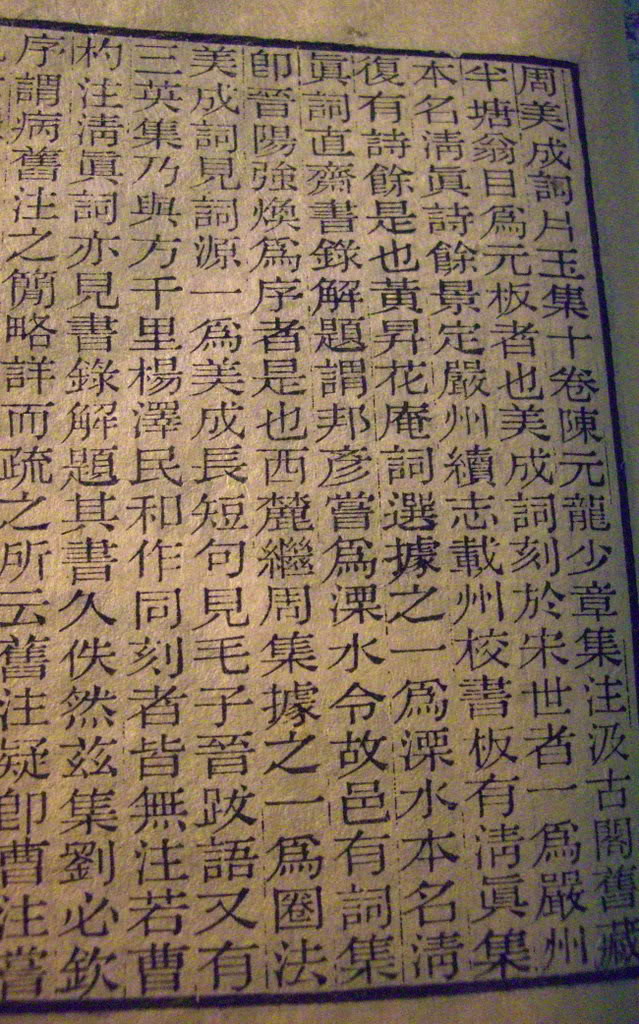 周美成詞片玉集十卷陳元龍少章集注汲古閣舊藏
半塘翁目爲元板者也美成詞刻於宋世者一爲嚴州
本名淸眞詩餘景定嚴州續志載州校書板有淸眞集
復有詩餘是也黃昇花庵詞選據之一爲溧水本名淸
眞詞直齋書錄解題謂邦彥嘗爲溧水令故邑有詞集
卽晉陽強煥爲序者是也西麓繼周集據之一爲圈法
美成詞見詞源一爲美成長短句見毛子晉跋語又有
三英集乃與方千里楊澤民和作同刻者皆無注若曹
杓注淸眞詞亦見書錄解題其書久佚然茲集劉必欽
序謂病舊注之簡略詳而疏之所云舊注疑卽曹注嘗